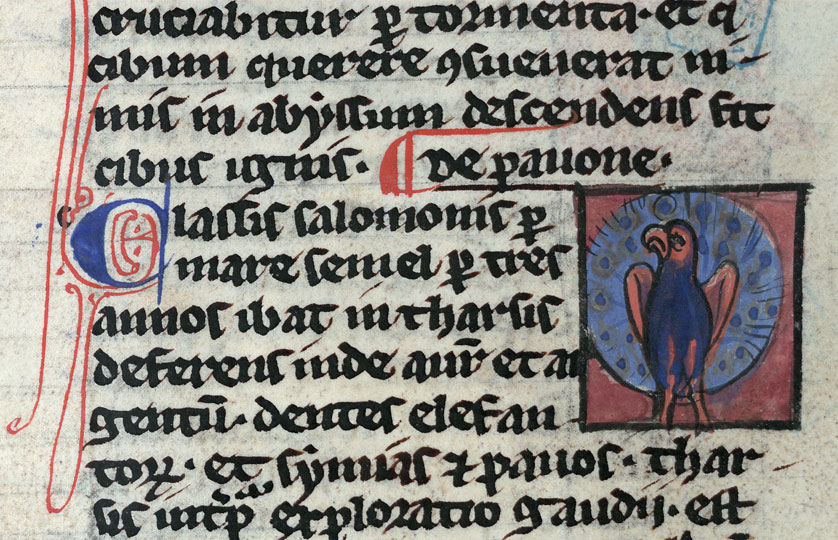 cruciabitur ꝑ tormenta· et q
cibum querere ꝯsueuerat in
imis in abẏssum descendens fit
cibus ignis· ¶ De pauone·
Classis salomonis ꝑ
mare semel ꝑ tres
annos ibat in tharsis
deferens inde aur̄ et ar
gentū· dentes elefan
toꝝ· et sẏmias ⁊ pauos· thar
sis int̄p̄ exploratio gaudij· est